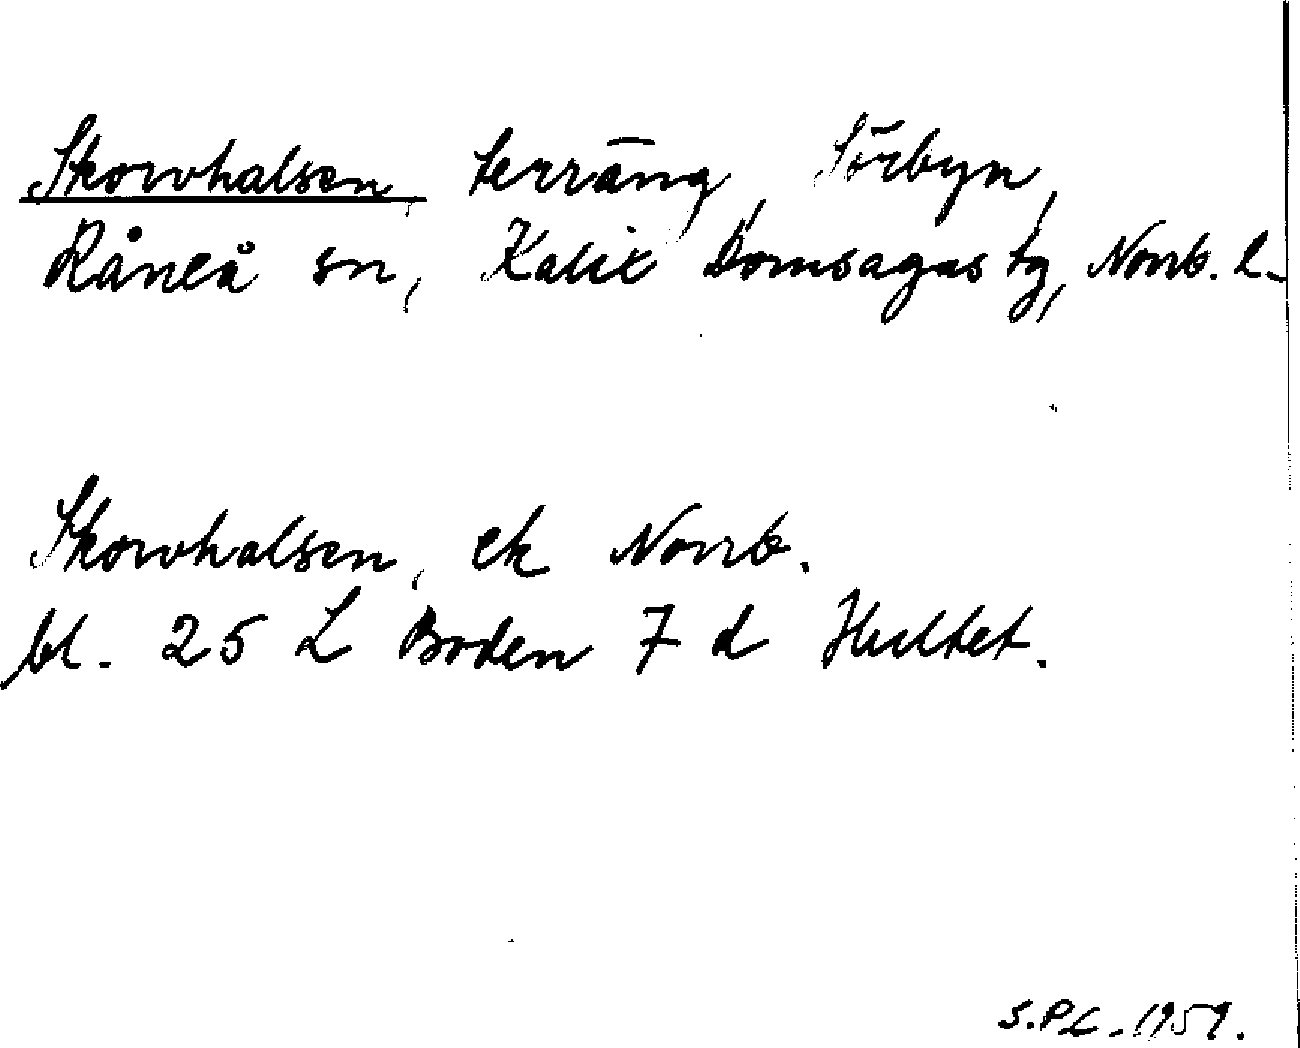 Skorvhalsen, terräng, Sörbyn,
Råneå sn, Kalix Domsagas tg, Norrb. l.
Skorvhalsen, ek Norrb.
bl. 25 L Boden 7 d Hultet.
S.P.L. 1959.